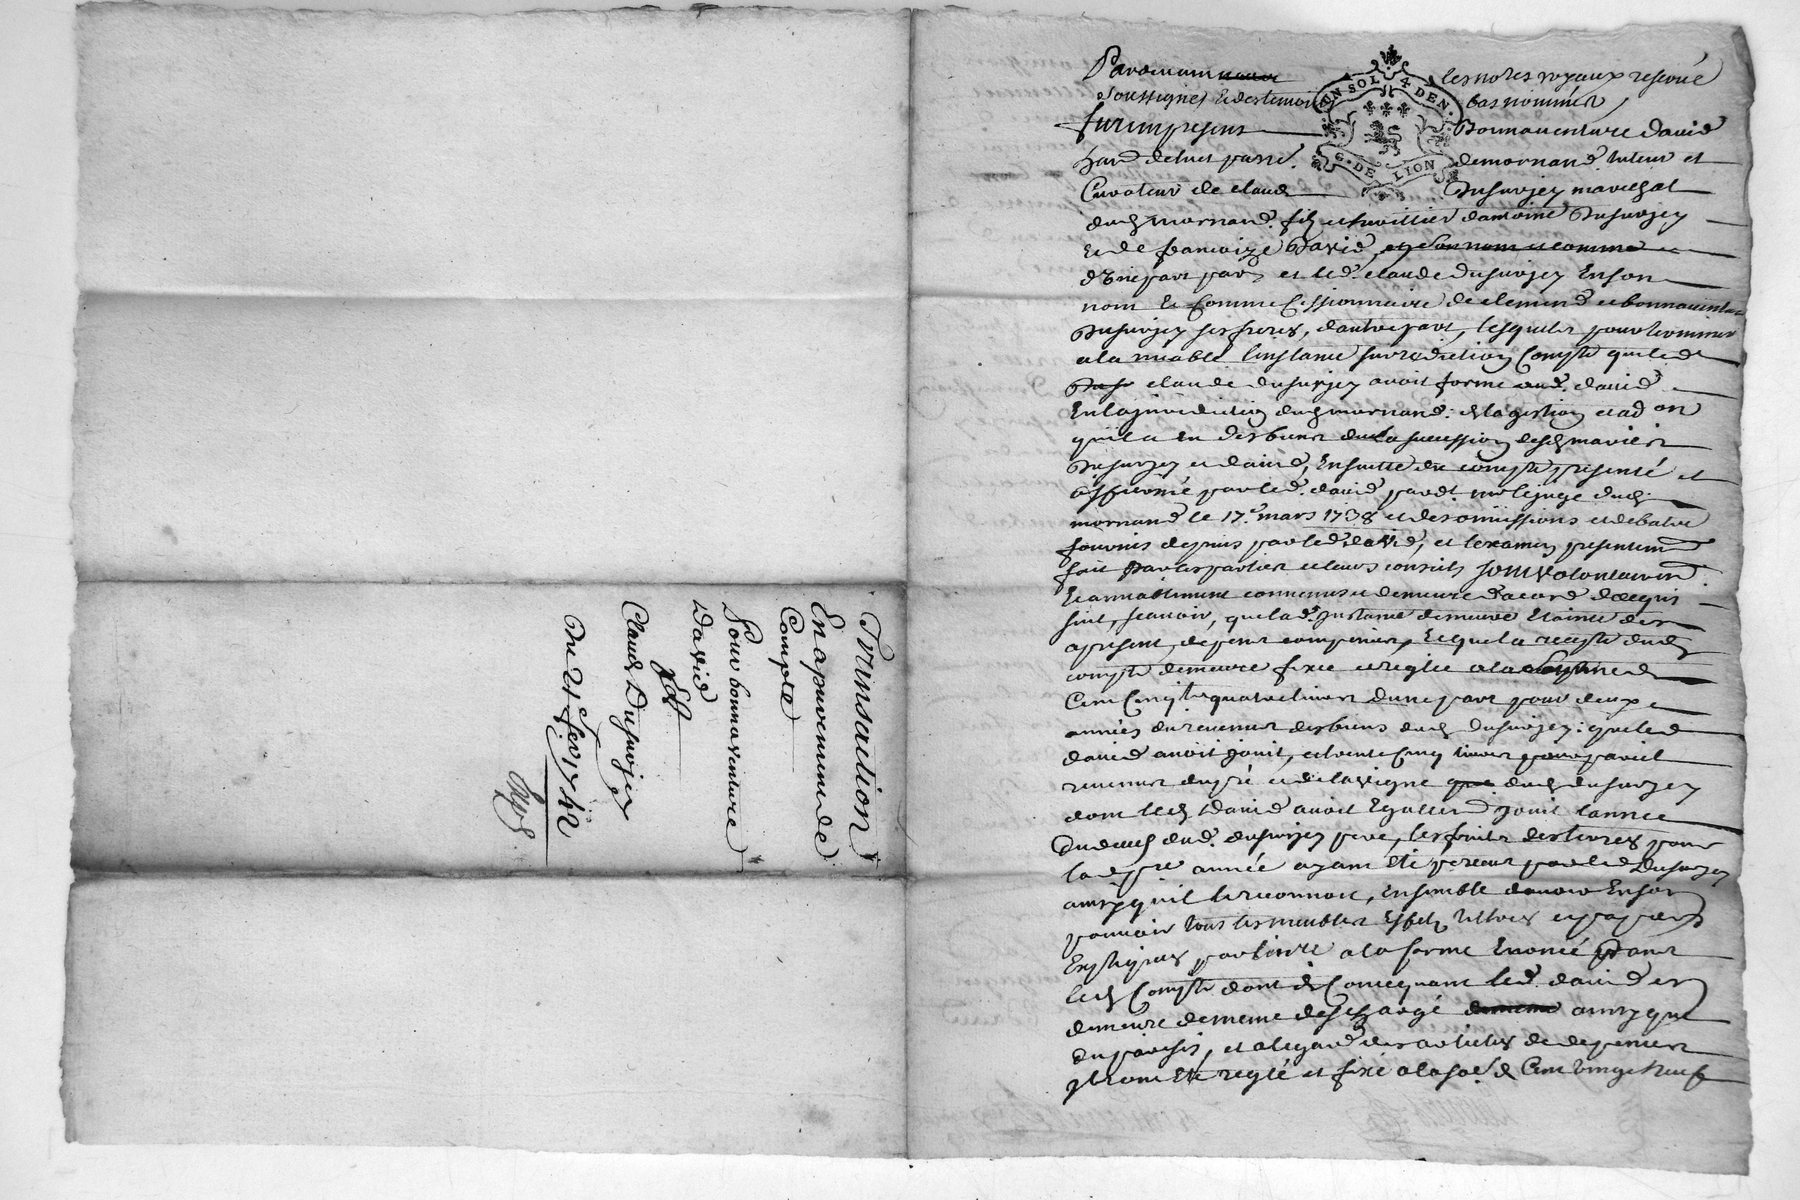 Transaction
En apurement de
Compte
Pour bonnaventure
David
Et
Claude Dusurjey
Du 21e fev. 1742
Pardevant les notes royaux reservé
soussignes et des temoins bas nommés
furent presens Bonnaventure david
UN SOL 4 DEN.
G. DE LION
de mornand tuteur et
Curateur de claude Dusurjey marechal
dud mornand. fils et heritier d'antoine Dusurjey
et de francoize David, et en son nom et comme
d'une part et led. claude dusurjey en son
nom et comme cessionnaire de clement et bonnaventure
Dusurjey ses freres, d'autre part, lesquels pour terminer
a la miable l'instance sur reddition compte que led
claude dusurjey avoit formé aud. david
en la jurisdiction dud mornand. de la gestion et ad on
qu'il a eu des biens de la succession desd mariés
Dusurjey et david, ensuitte du compte presenté et
affirmé par led. david pard. mr le juge dud
mornand le 17e. mars 1738 et des omissions et debats
fournis depuis par led. david, et l'examen presentement
fait par les parties et leurs conseils sont volontairem
et amiablement convenus et demeuré d'acord de ce qui
suit, scavoir, que lad. instance demeure eteinte des
a present, depens compensés, et que la recepte dud
compte demeure fixée et reglée a la somme de
Cent cinq te quatre livres d'une part pour deux
années du revenu des biens dud dusurjey que led
david avoit jouit, et trente cinq livres pour pareil
revenu du pré et de la vigne dud dusurjey
dont led David avoit egallem jouit l'année
du deces dud. dusurjey pere, les fruits des terres pour
la dre année ayant été perceus par led Dusurjey
ainsy qu'il le reconnoit, ensemble d'avoir en son
pouvoir tous les meubles effets titres et papiers
la forme enoncé dans
led Compte dont de consequant led. david en
demeure de meme deschargé ainsy que
du , et a l'egard des articles de depenses
ils ont été reglé et fixé a la soe. de Cent vingt neuf